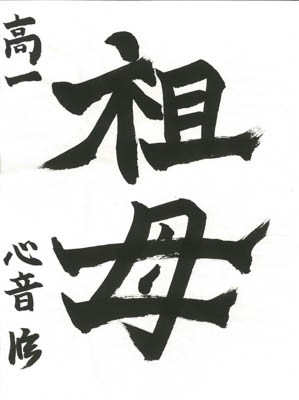 祖母
高一
心音